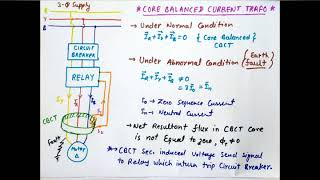 3-Φ Supply
R
Y
B
CIRCUIT
BREAKER
RELAY
CBCT
Fault
MOTOR
* CORE BALANCED CURRENT TRAFO *
→ Under Normal Condition
I̅R + I̅Y + I̅B = 0 { Core Balanced }
CBCT
→ Under Abnormal Condition ( Earth fault )
I̅R + I̅Y + I̅B ≠ 0
= 3I̅0 = I̅n
I0 → Zero Sequence Current
In → Neutral Current
→ Net Resultant flux in CBCT Core
is not equal to zero, Φr ≠ 0
* CBCT Sec. induced Voltage Send Signal
to Relay which inturn trip Circuit Breaker.